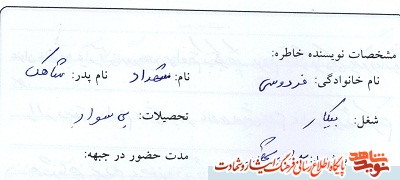 مشخصات نویسنده خاطره:
نام خانوادگی: فردوسی نام: شهداد نام پدر: شاهک
شغل: بیکار تحصیلات: بی سوار
مدت حضور در جبهه:
نوید شاهد
پایگاه اطلاع رسانی فرهنگ ایثار و شهادت